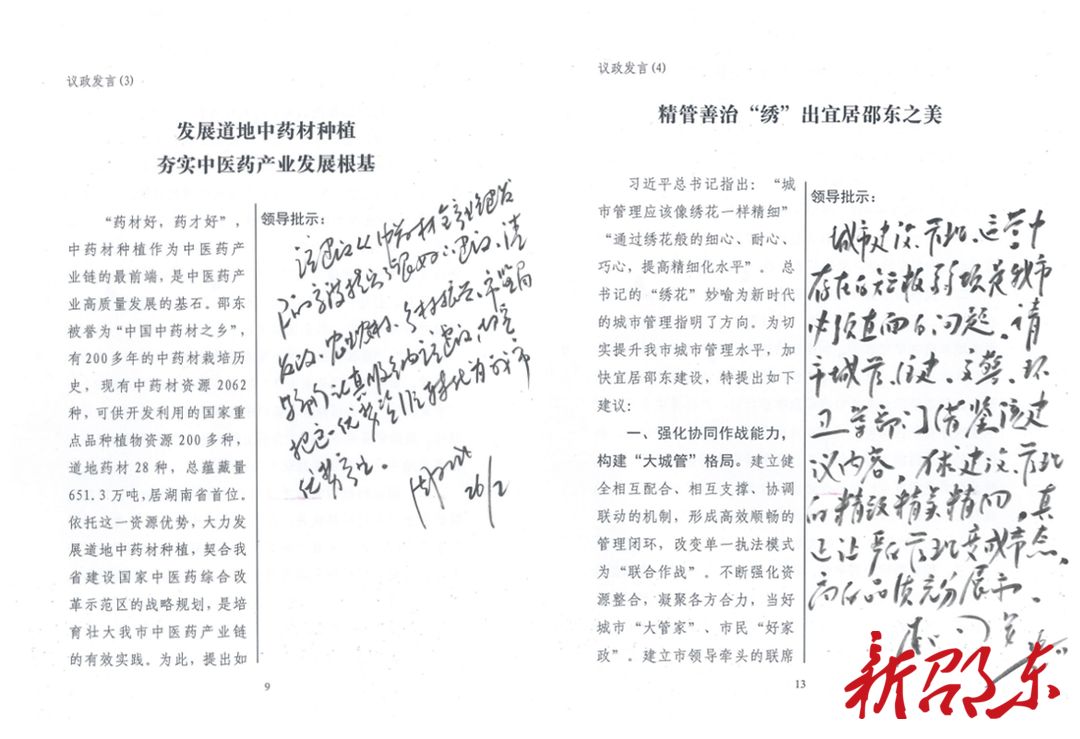 议政发言(3)
发展道地中药材种植
夯实中医药产业发展根基
“药材好，药才好”，
中药材种植作为中医药产
业链的最前端，是中医药产
业高质量发展的基石。邵东
被誉为“中国中药材之乡”，
有200多年的中药材栽培历
史，现有中药材资源2062
种，可供开发利用的国家重
点品种植物资源200多种，
道地药材28种，总蕴藏量
651.3万吨，居湖南省首位。
依托这一资源优势，大力发
展道地中药材种植，契合我
省建设国家中医药综合改
革示范区的战略规划，是培
育壮大我市中医药产业链
的有效实践。为此，提出如
领导批示：
该建议从中药材全产业链发
发改、农业农村、乡村振兴、市监局
等部门认真吸纳该建议，
把这一优势 转化为我市
优势产业。
26/2
9
议政发言(4)
精管善治“绣”出宜居邵东之美
习近平总书记指出：“城
市管理应该像绣花一样精细”
“通过绣花般的细心、耐心、
巧心，提高精细化水平”。总
书记的“绣花”妙喻为新时代
的城市管理指明了方向。为切
实提升我市城市管理水平，加
快宜居邵东建设，特提出如下
建议：
一、强化协同作战能力，
构建“大城管”格局。建立健
全相互配合、相互支撑、协调
联动的机制，形成高效顺畅的
管理闭环，改变单一执法模式
为“联合作战”。不断强化资
源整合，凝聚各方合力，当好
城市“大管家”、市民“好家
政”。建立市领导牵头的联席
领导批示：
城市建设、管理、运营中
存在的短板弱项是我市
必须直面的问题。请
市城管、住建、交警、环
卫等部门借鉴该建
议内容，在城建设、管理
的精致精美精细，真
正让严的管理变成常态，
高的品质充分展示。
13
新邵东